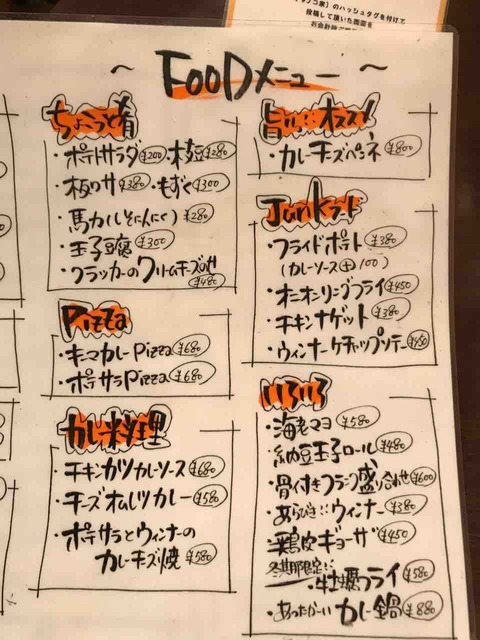 のハッシュタグを付けて
投稿して頂いた画面を
~ FOODメニュー ~
ちょこっと肴
・ポテトサラダ ¥200 ・枝豆 ¥280
・板ワサ ¥380 ・もずく ¥300
・馬カルそ(にんにく) ¥280
・玉子豆腐 ¥300
・クラッカーのクリームチーズのせ ¥480
Pizza
・キーマカレーPizza ¥680
・ポテサラPizza ¥680
カレー料理
・チキンカツカレーソース ¥680
・チーズオムレツカレー ¥580
・ポテサラとウィンナーの
カレーチーズ焼 ¥580
オススメ
・カレーチーズペンネ ¥800
Junkフード
・フライドポテト ¥380
(カレーソース⊕100)
・オニオンリングフライ ¥450
・チキンナゲット ¥380
・ウィンナーケチャップソテー ¥450
いろいろ
・海老マヨ ¥580
・納豆玉子ロール ¥480
・骨付きフランク盛り合わせ ¥600
・あらびき!!ウィンナー ¥380
・鶏皮ギョーザ ¥450
冬期限定!!
・牡蠣フライ ¥580
・あったか〜いカレー鍋 ¥880